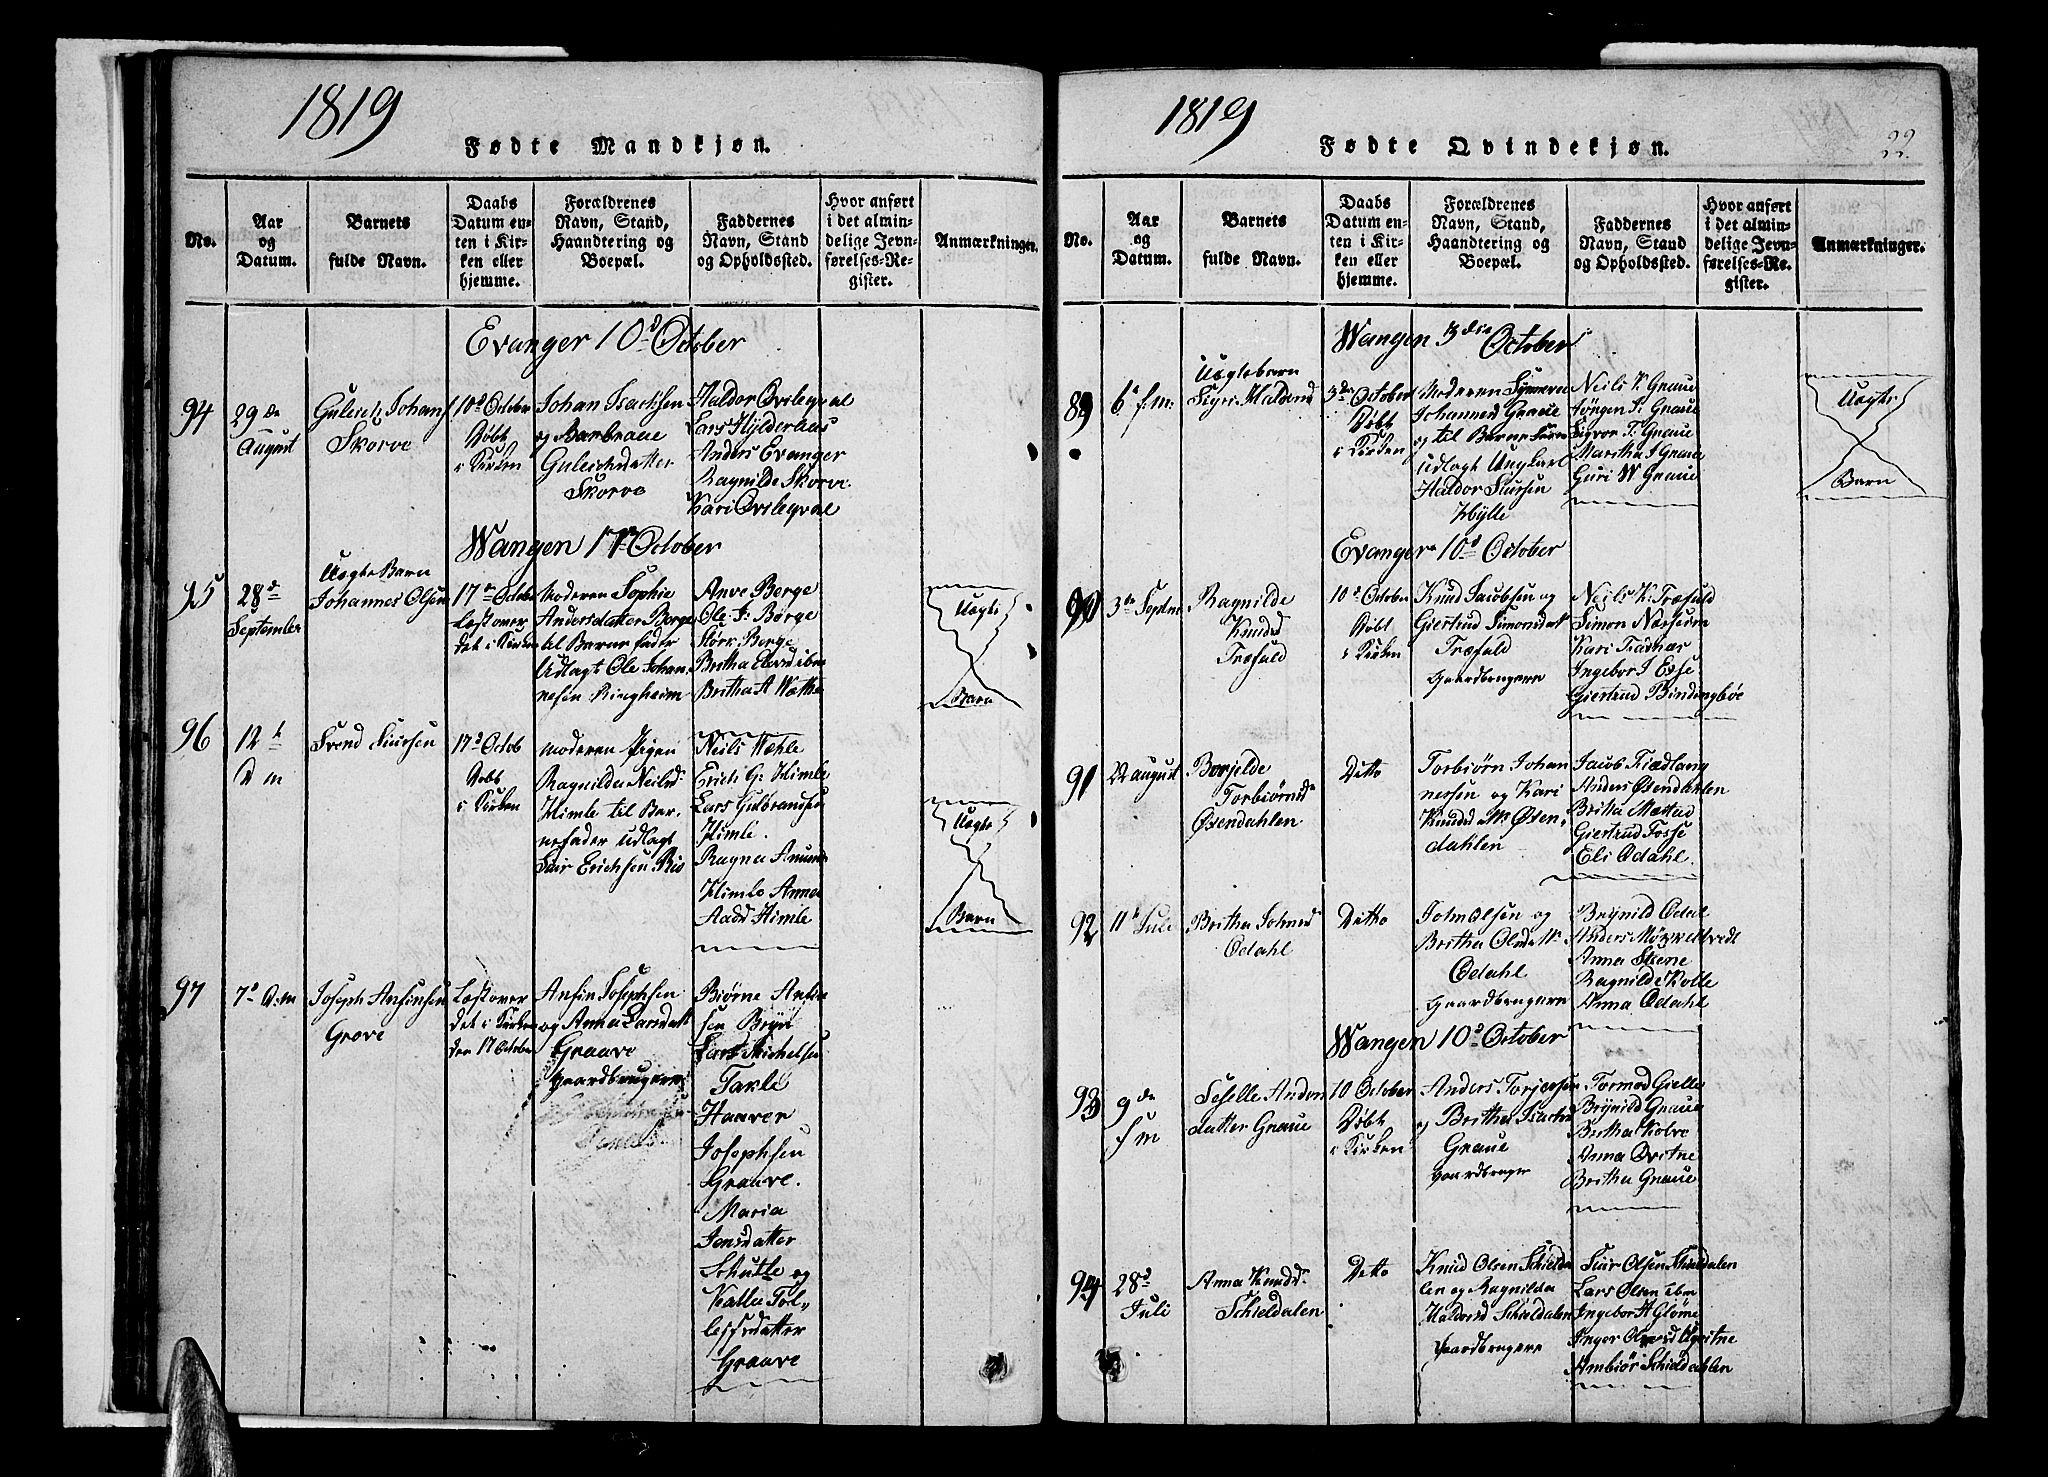 1819
Fødte Mandkjøn.
No.
Aar
og
Datum.
Barnets
fulde Navn.
Daabs
Datum en-
ten i Kir-
ken eller
hjemme.
Forældrenes
Navn, Stand,
Haandtering og
Boepæl.
Faddernes
Navn, Stand
og Opholdssted.
Hvor anført
i det almin-
delige Jevn-
førelses-Re-
gister.
Anmærkninger.
Evanger 10d October
94
29de
August
Guleich Johans
Skorve
10d October
Døbt
i Kirken
Johan Isachsen
og Barbraue
Guleichsdatter
Skorve
Haldor Qvileqval
Lars Hylderhaas
Anders Evanger
Ragnilde Skorve
Kari Qvileqval
Wangen 17de October
95
28d
September
Uægte Barn
Johannes Olsen
17de October
Læst over
det i Kirken
Moderen Sophie
Andersdatter Berge
til Barnefader
Udlagt Ole Johan
nesen Ringheim
Anve Berge
Ole J: Børge
Størk Berge
Britha ibm
Britha A
Uægte
Barn
96
12t
D m
Svend Siursen
17d Octob
Døbt
i Kirken
Moderen Pigen
Ragnilda Neilsd
Himle til Bar-
nefader udlagt
Siur Erichsen Rio
Neils Wæhle
Erich G: Himle
Lars Gulbrandsen
Himle.
Ragna Amund
Himle Anna
Aadsd Himle
Uægte
Barn
97
7d D: m
Joseph Ansinsen
Grove
Læst over
det i Kirken
den 17 October
Ansin Josephsen
og Anna Larsdatt
Graave
Gaardbrugere
Biørne Ansin
sen Bryn
Lars Michelsen
Takle
Haaver
Josephsen
Graave.
Maria
Jensdatter
Schutte og
Kallu Tol-
lefsdatter
Graave
1819
Fødte Qvindekjøn.
22.
No.
Aar
og
Datum.
Barnets
fulde Navn.
Daabs
Datum en-
ten i Kir-
ken eller
hjemme.
Forældrenes
Navn, Stand,
Haandtering og
Boepæl.
Faddernes
Navn, Stand
og Opholdssted.
Hvor anført
i det almin-
delige Jevn-
førelses-Re-
gister.
Anmærkninger.
Wangen 3die October
89
6t f.m:
Uægtebarn
Sigri Haldorsd
3die October
Døbt
i Kirken
Moderen Synneve
Johannesd Graue
og til Barnefader
udlagt Ungkarl
Haldor Siursen
Hylle
Neils K. Graue
Jørgen J: Graue
Sigvor T: Graue
Maritha J Graue
Guri W Graue
Uægte
Barn
Evanger 10d October
90
3de Septem
Ragnilde
Knudsd
Træfald
10d October
Døbt
i Kirken
Knud Jacobsen og
Giertrud Simonsdatt
Træfald
Gaardbrugere
Neils K: Træfald
Simon Næsseim
Kari Fiadnæs
Ingebor J Esse
Giertrud Bindingbøe
91
22 august
Borgilde
Torbiørnsd
Øsendahlen
Ditto
Torbiørn Johan
nessen og Kari
Knudsd Øsen-
dahlen
Jacob Fiædlang
Anders Øsendahlen
Britha Mæstad
Giertrud Fosse
Eli Ødahl.
92
11t Juli
Britha Johnsd
Ødahl
Ditto
John Olsen og
Britha Olsd
Ødahl
Gaardbrugere
Brynild Ødal
Anders Mørkethvedt
Anna Steene
Ragnilde Kolle
Anna Ødahl
Wangen 10d October
93
9de
f m
Seselle Anders
datter Graue
10 October
Døbt
i Kirken
Anders Torjersen
og Britha Isachsd
Graue
Gaardbruger
Tormod Gielle
Brynild Graue
Britha Kolve
Anna Qvitne
Britha Graue
94
28d
Juli
Anna Knudsd
Schieldalen
Ditto
Knud Olsen Schielda
len og Ragnilda
Haldorsd Schieldalen
Gaardbrugere
Siur Olsen Schieldalen
Lars Olsen ibm
Ingebor A Gløme
Inger Olversd Qvitne
Ambiør Schieldahlen